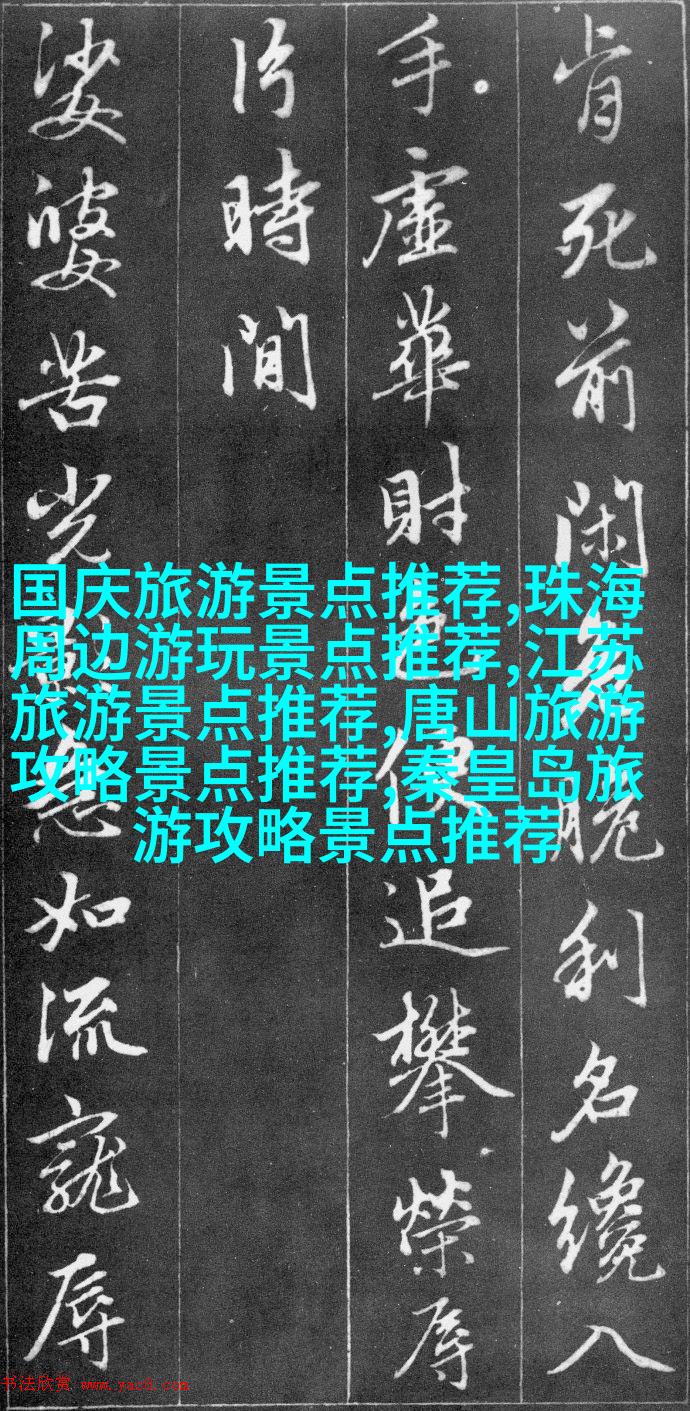 肯死前閑危脆利名纔入
手虛華財色便追攀榮辱
片時間
娑婆苦光影急如流寵辱
国庆旅游景点推荐,珠海
周边游玩景点推荐,江苏
旅游景点推荐,唐山旅游
攻略景点推荐,秦皇岛旅
游攻略景点推荐
书法欣赏 www.yac8.com